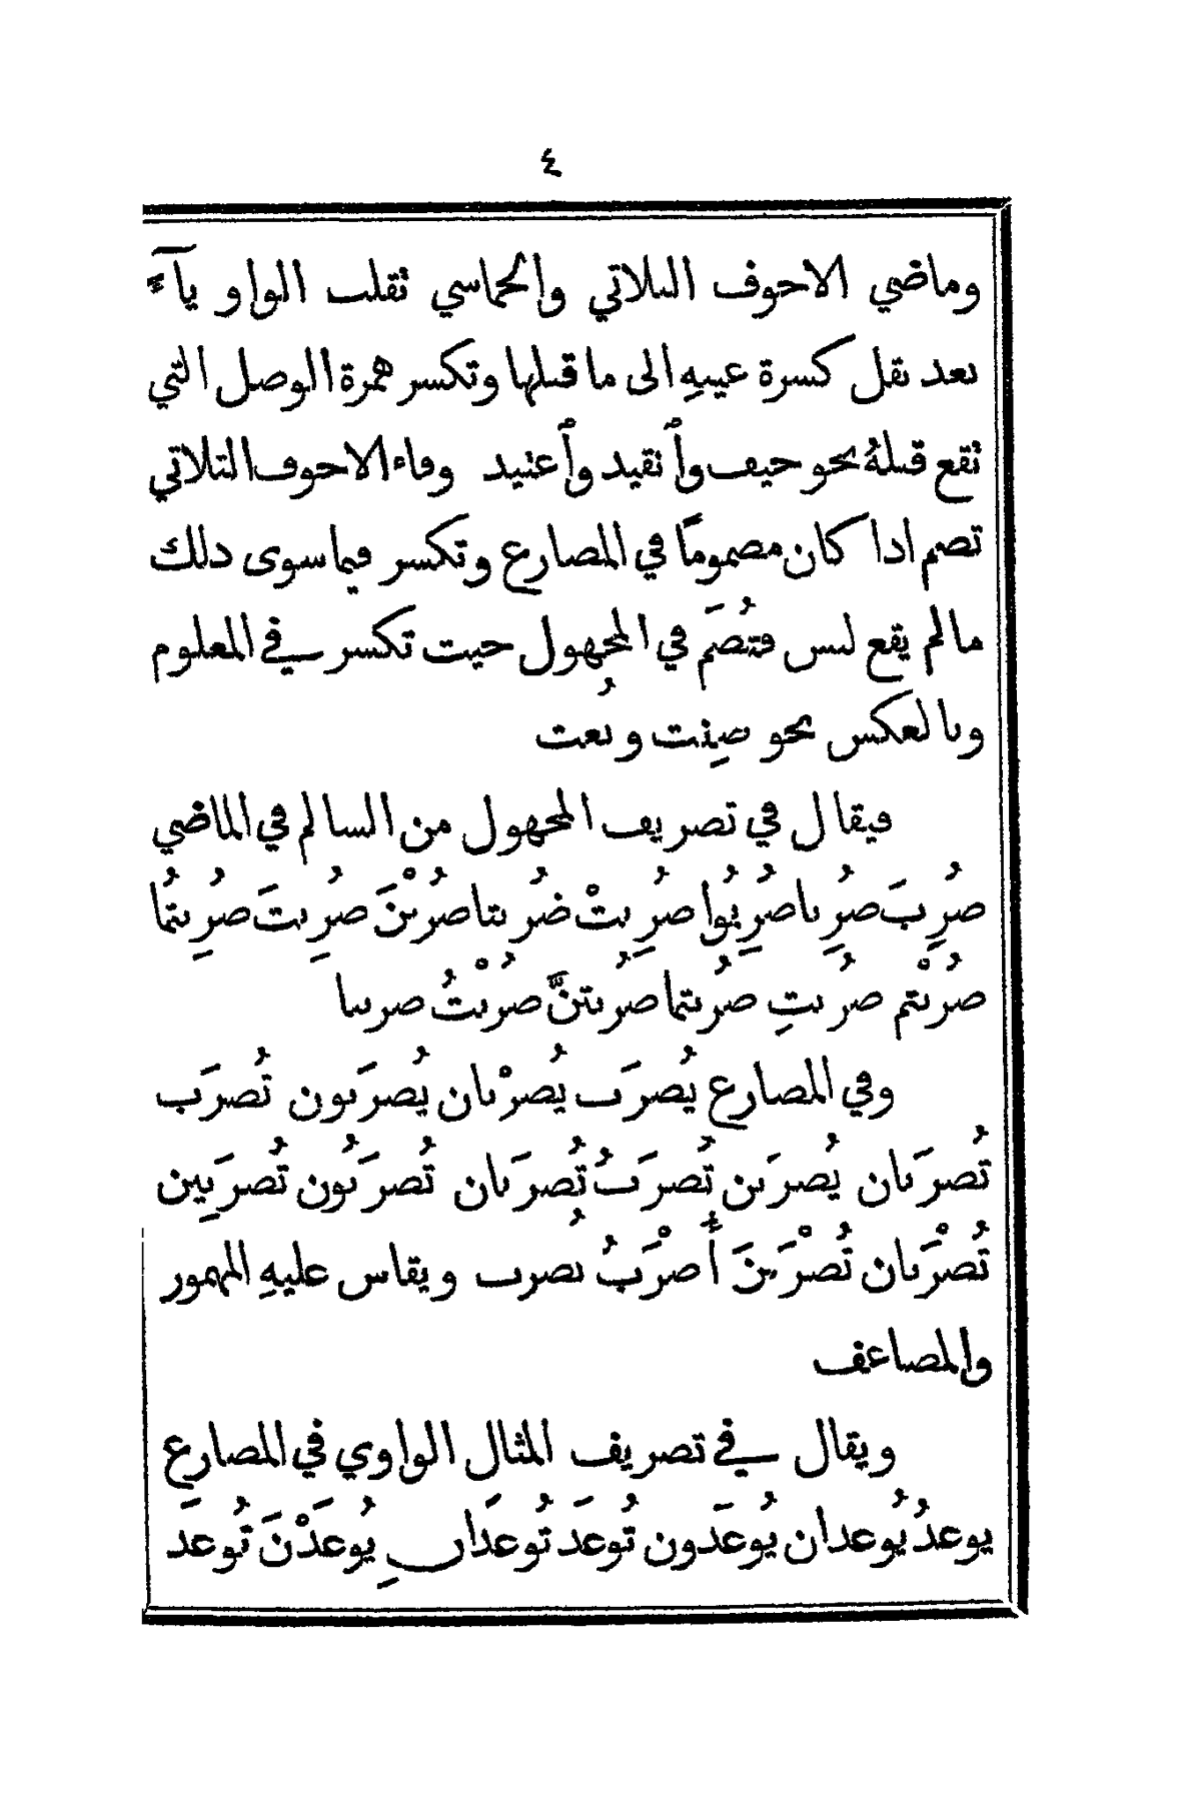 ٤
وماضي الاجوف الثلاثي والخماسي تقلب الواو ياءً
بعد نقل كسرة عينهِ الى ما قبلها وتكسر همزة الوصل التي
تقع قبلهُ نحو خيف وأُنقيد وأُعتيد وفاء الاجوف الثلاثي
تضم اذا كان مضموماً في المضارع وتكسر فيما سوى ذلك
ما لم يقع لبس فتُضَم في المجهول حيث تكسر في المعلوم
وبالعكس نحو صِنت وبُعت
فيقال في تصريف المجهول من السالم في الماضي
ضُرِبَ ضُرِبا ضُرِبُوا ضُرِبتْ ضُربتا ضُرِبْنَ ضُرِبتَ ضُرِبتُما
ضُرِبْتم ضُربتِ ضُربتما ضُربتنَّ ضُرِبْتُ ضربنا
وفي المضارع يُضرَب يُضرْبان يُضرَبون تُضرَب
تُضرَبان يُضرَبن تُضرَبُ تُضرَبان تُضرَبُون تُضرَبِين
تُضْرَبان تُضْرَبنَ أُضْرَبُ نضرب ويقاس عليهِ المهموز
والمضاعف
ويقال في تصريف المثال الواوي في المضارع
يوعدُ يُوعدان يُوعَدون تُوعَد تُوعَدَانِ يُوعَدْنَ تُوعَدَ